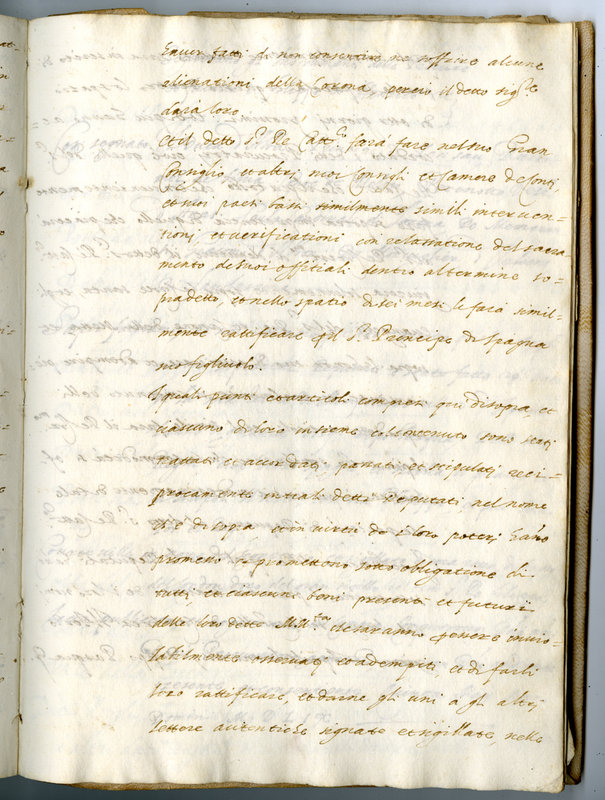 Enver fatti di non consentire ne soffrire alcune
alienationi della Corona, percio il detto sig.re
darà loro.
Et il detto S.r Re Catt.co farà fare nel suo Gran
Consiglio et altri suoi Consigli et Camere de Conti,
et suoi paesi bassi similmente simili interven=
tioni, et verificationi con relassatione del sacra=
mento de suoi offitiali dentro al termine so=
pradetto, et nello spatio di sei mesi le farà simil=
mente ratificare al S.r Principe di Spagna
suo figliuolo.
I quali punti et articoli compresi qui di sopra, et
ciascuno di loro insieme col contenuto sono stati
trattati et accordati, passati et stipulati reci=
procamente intra li detti Deputati nel nome
ch'è di sopra et in virtù de i loro poteri hano
promesso et promettono sotto obligatione di
tutti, et ciascuni beni presenti et futuri
delle loro dette M.tà che saranno per ... invio=
labilmente osservati et adempiti, et di farli
loro ratificare, et darne gli uni a gli altri
lettere autentiche signate et sigillate, nelle